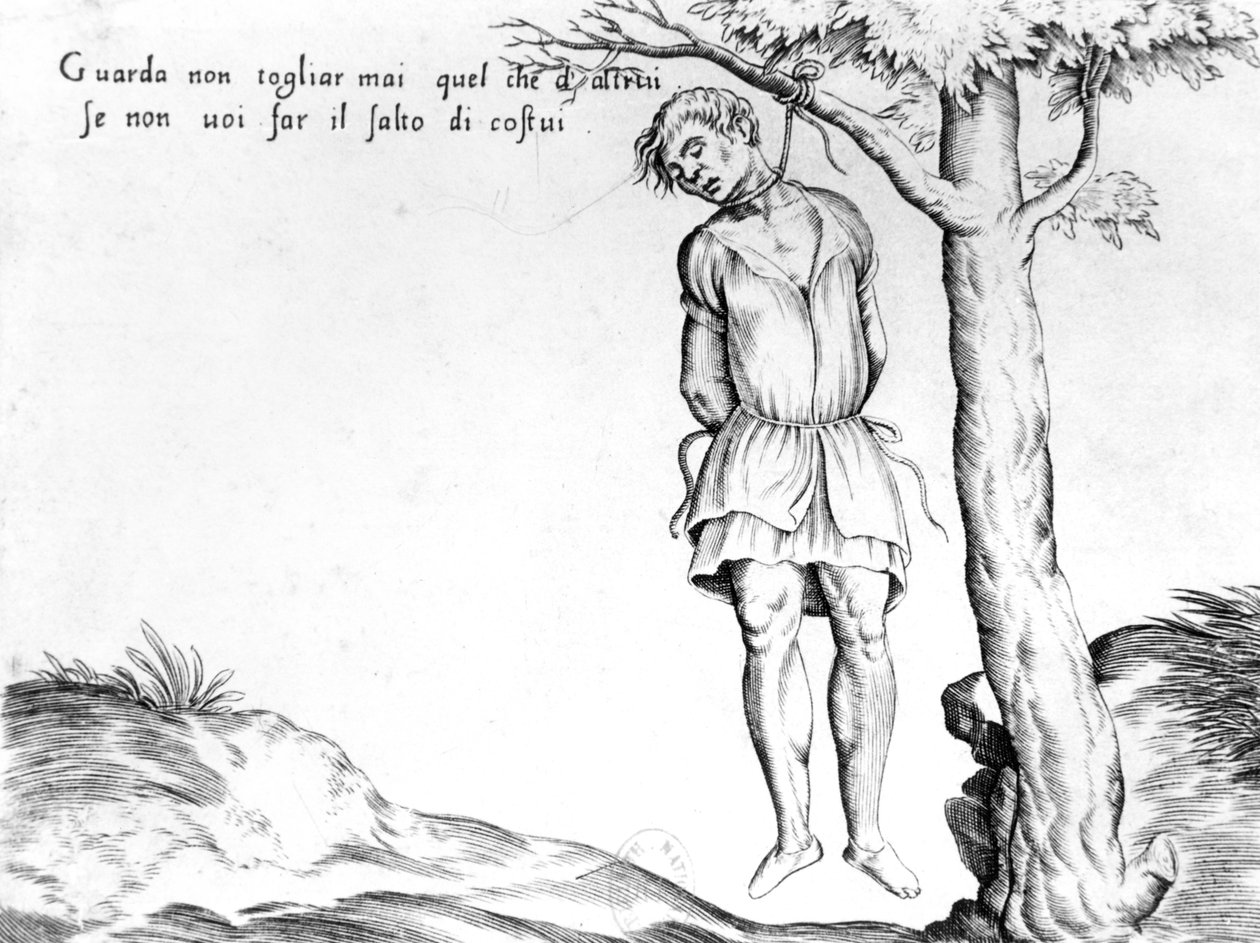 Guarda non togliar mai quel che d'altrui .
ſe non uoi far il ſalto di coſtui .
BIBLIOTH. NATI